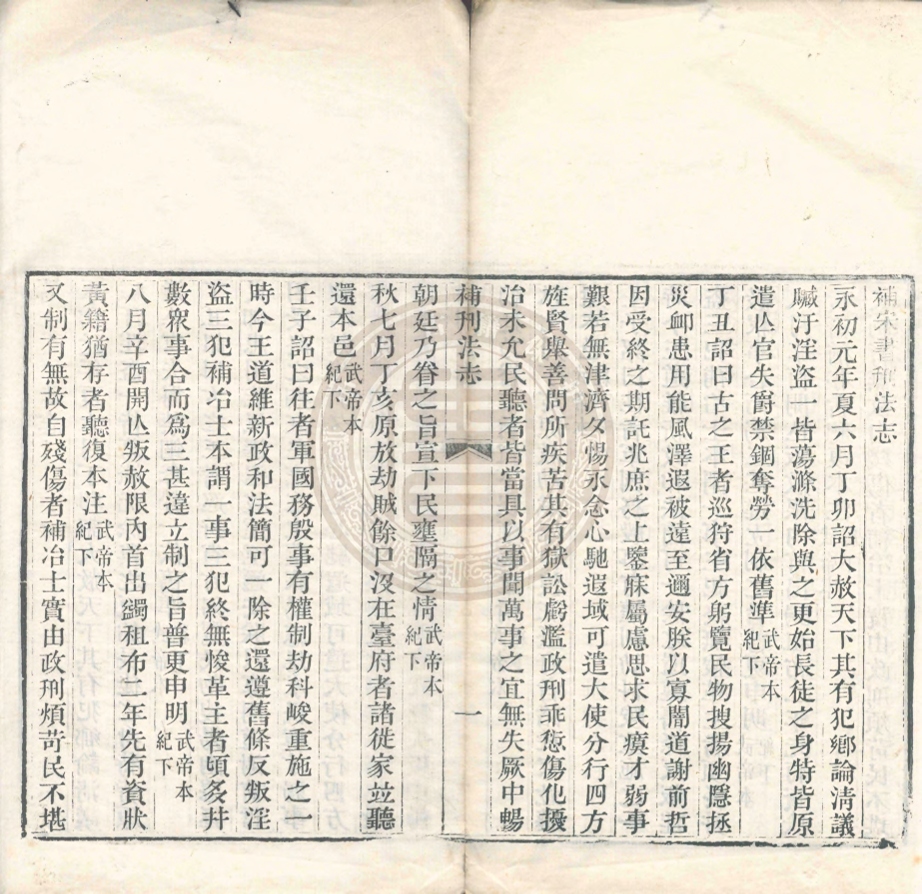 補宋書刑法志
永初元年夏六月丁卯詔大赦天下其有犯鄉論清議
贓汙淫盜一皆蕩滌洗除與之更始長徒之身特皆原
遣亾官失爵禁錮奪勞一依舊準武帝本紀下
丁丑詔曰古之王者巡狩省方躬覽民物搜揚幽隱拯
災卹患用能風澤遐被遠至邇安朕以寡闇道謝前哲
因受終之期託兆庶之上鑒寐屬慮思求民瘼才弱事
艱若無津濟夕惕永念心馳遐域可遣大使分行四方
旌賢舉善問所疾苦其有獄訟虧濫政刑乖愆傷化擾
治未允民聽者皆當具以事聞萬事之宜無失厥中暢
補刑法志 一
朝廷乃眷之旨宣下民壅隔之情武帝本紀下
秋七月丁亥原放劫賊餘口沒在臺府者諸徙家並聽
還本邑武帝本紀下
壬子詔曰往者軍國務殷事有權制劫科峻重施之一
時今王道維新政和法簡可一除之還遵舊條反叛淫
盜三犯補冶士本謂一事三犯終無悛革主者頃多幷
數衆事合而爲三甚違立制之旨普更申明武帝本紀下
八月辛酉開亾叛赦限內首出蠲租布二年先有資狀
黃籍猶存者聽復本注武帝本紀下
又制有無故自殘傷者補冶士實由政刑煩苛民不堪